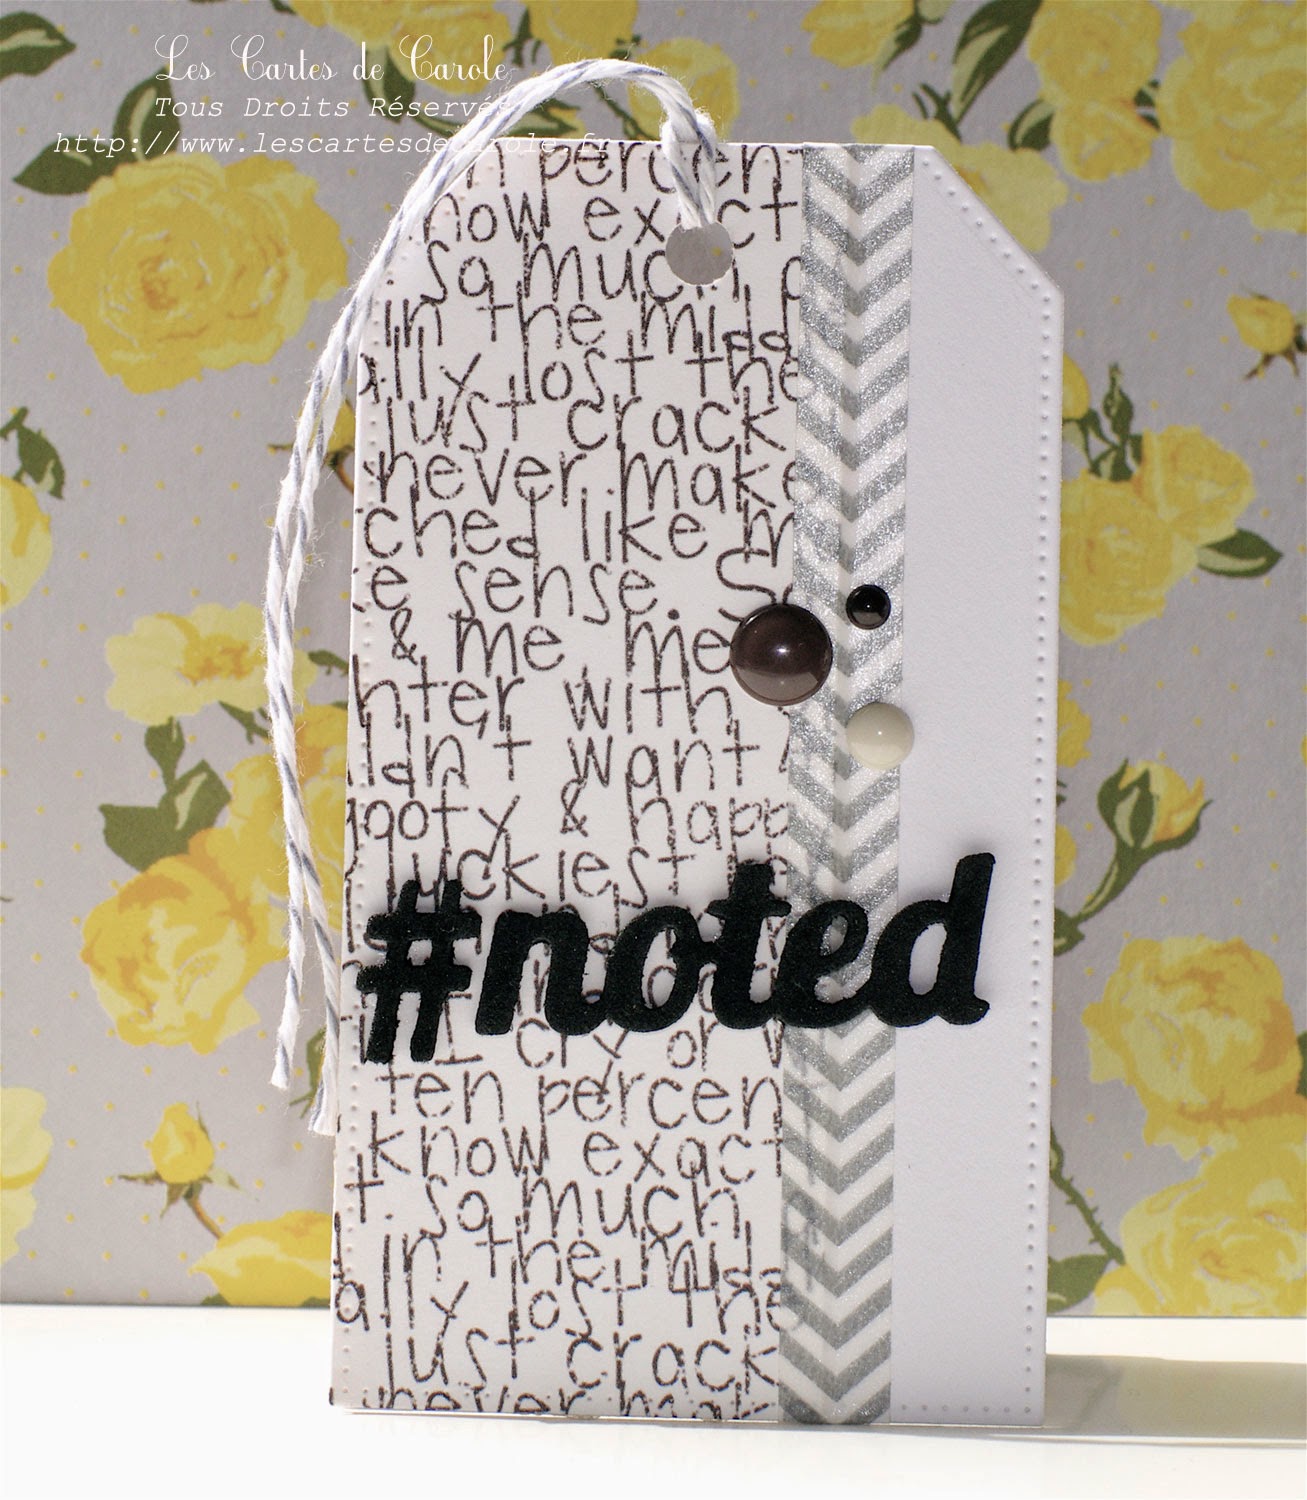 Les Cartes de Carole
Tous Droits Réservés
http://www.lescartesdecarole.fr
percent
now exact
so much
in the midd
ally lost the
just crack
never make
ched like m
ce sense. So
& me, me
nter with
ldn't want
goofy & happ
luckiest
#noted
I cry or w
ten percent
know exact
t. so much
in the mid
ally lost the
just crack
never mak